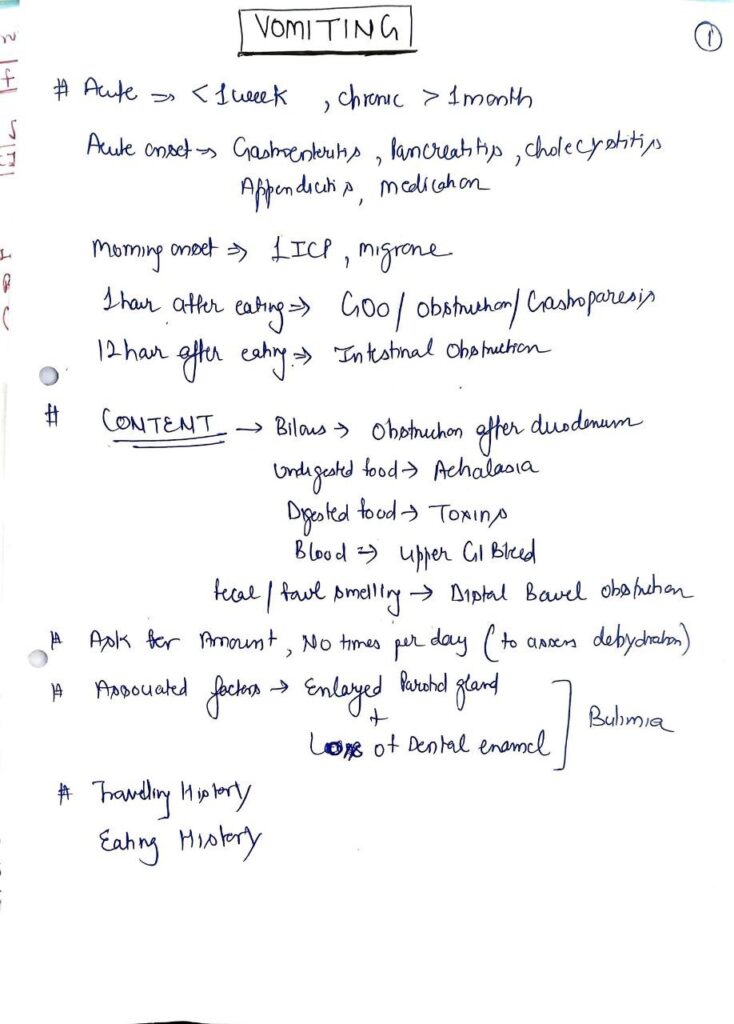 VOMITING
1
# Acute ⇒ < 1 week , chronic > 1 month
Acute onset → Gastroenteritis , Pancreatitis , cholecystitis
Appendicitis , medication
Morning onset ⇒ ↑ICP , migrane
1 hour after eating ⇒ GOO / obstruction / Gastroparesis
12 hour after eating ⇒ Intestinal Obstruction
# CONTENT → Bilous → Obstruction after duodenum
Undigested food → Achalasia
Digested food → Toxins
Blood ⇒ Upper GI Bleed
fecal / foul smelling → Distal Bowel obstruction
# Ask for Amount , No times per day ( to assess dehydration )
# Associated factors → Enlarged Parotid gland
+
Loss of Dental enamel
Bulimia
# Travelling History
Eating History